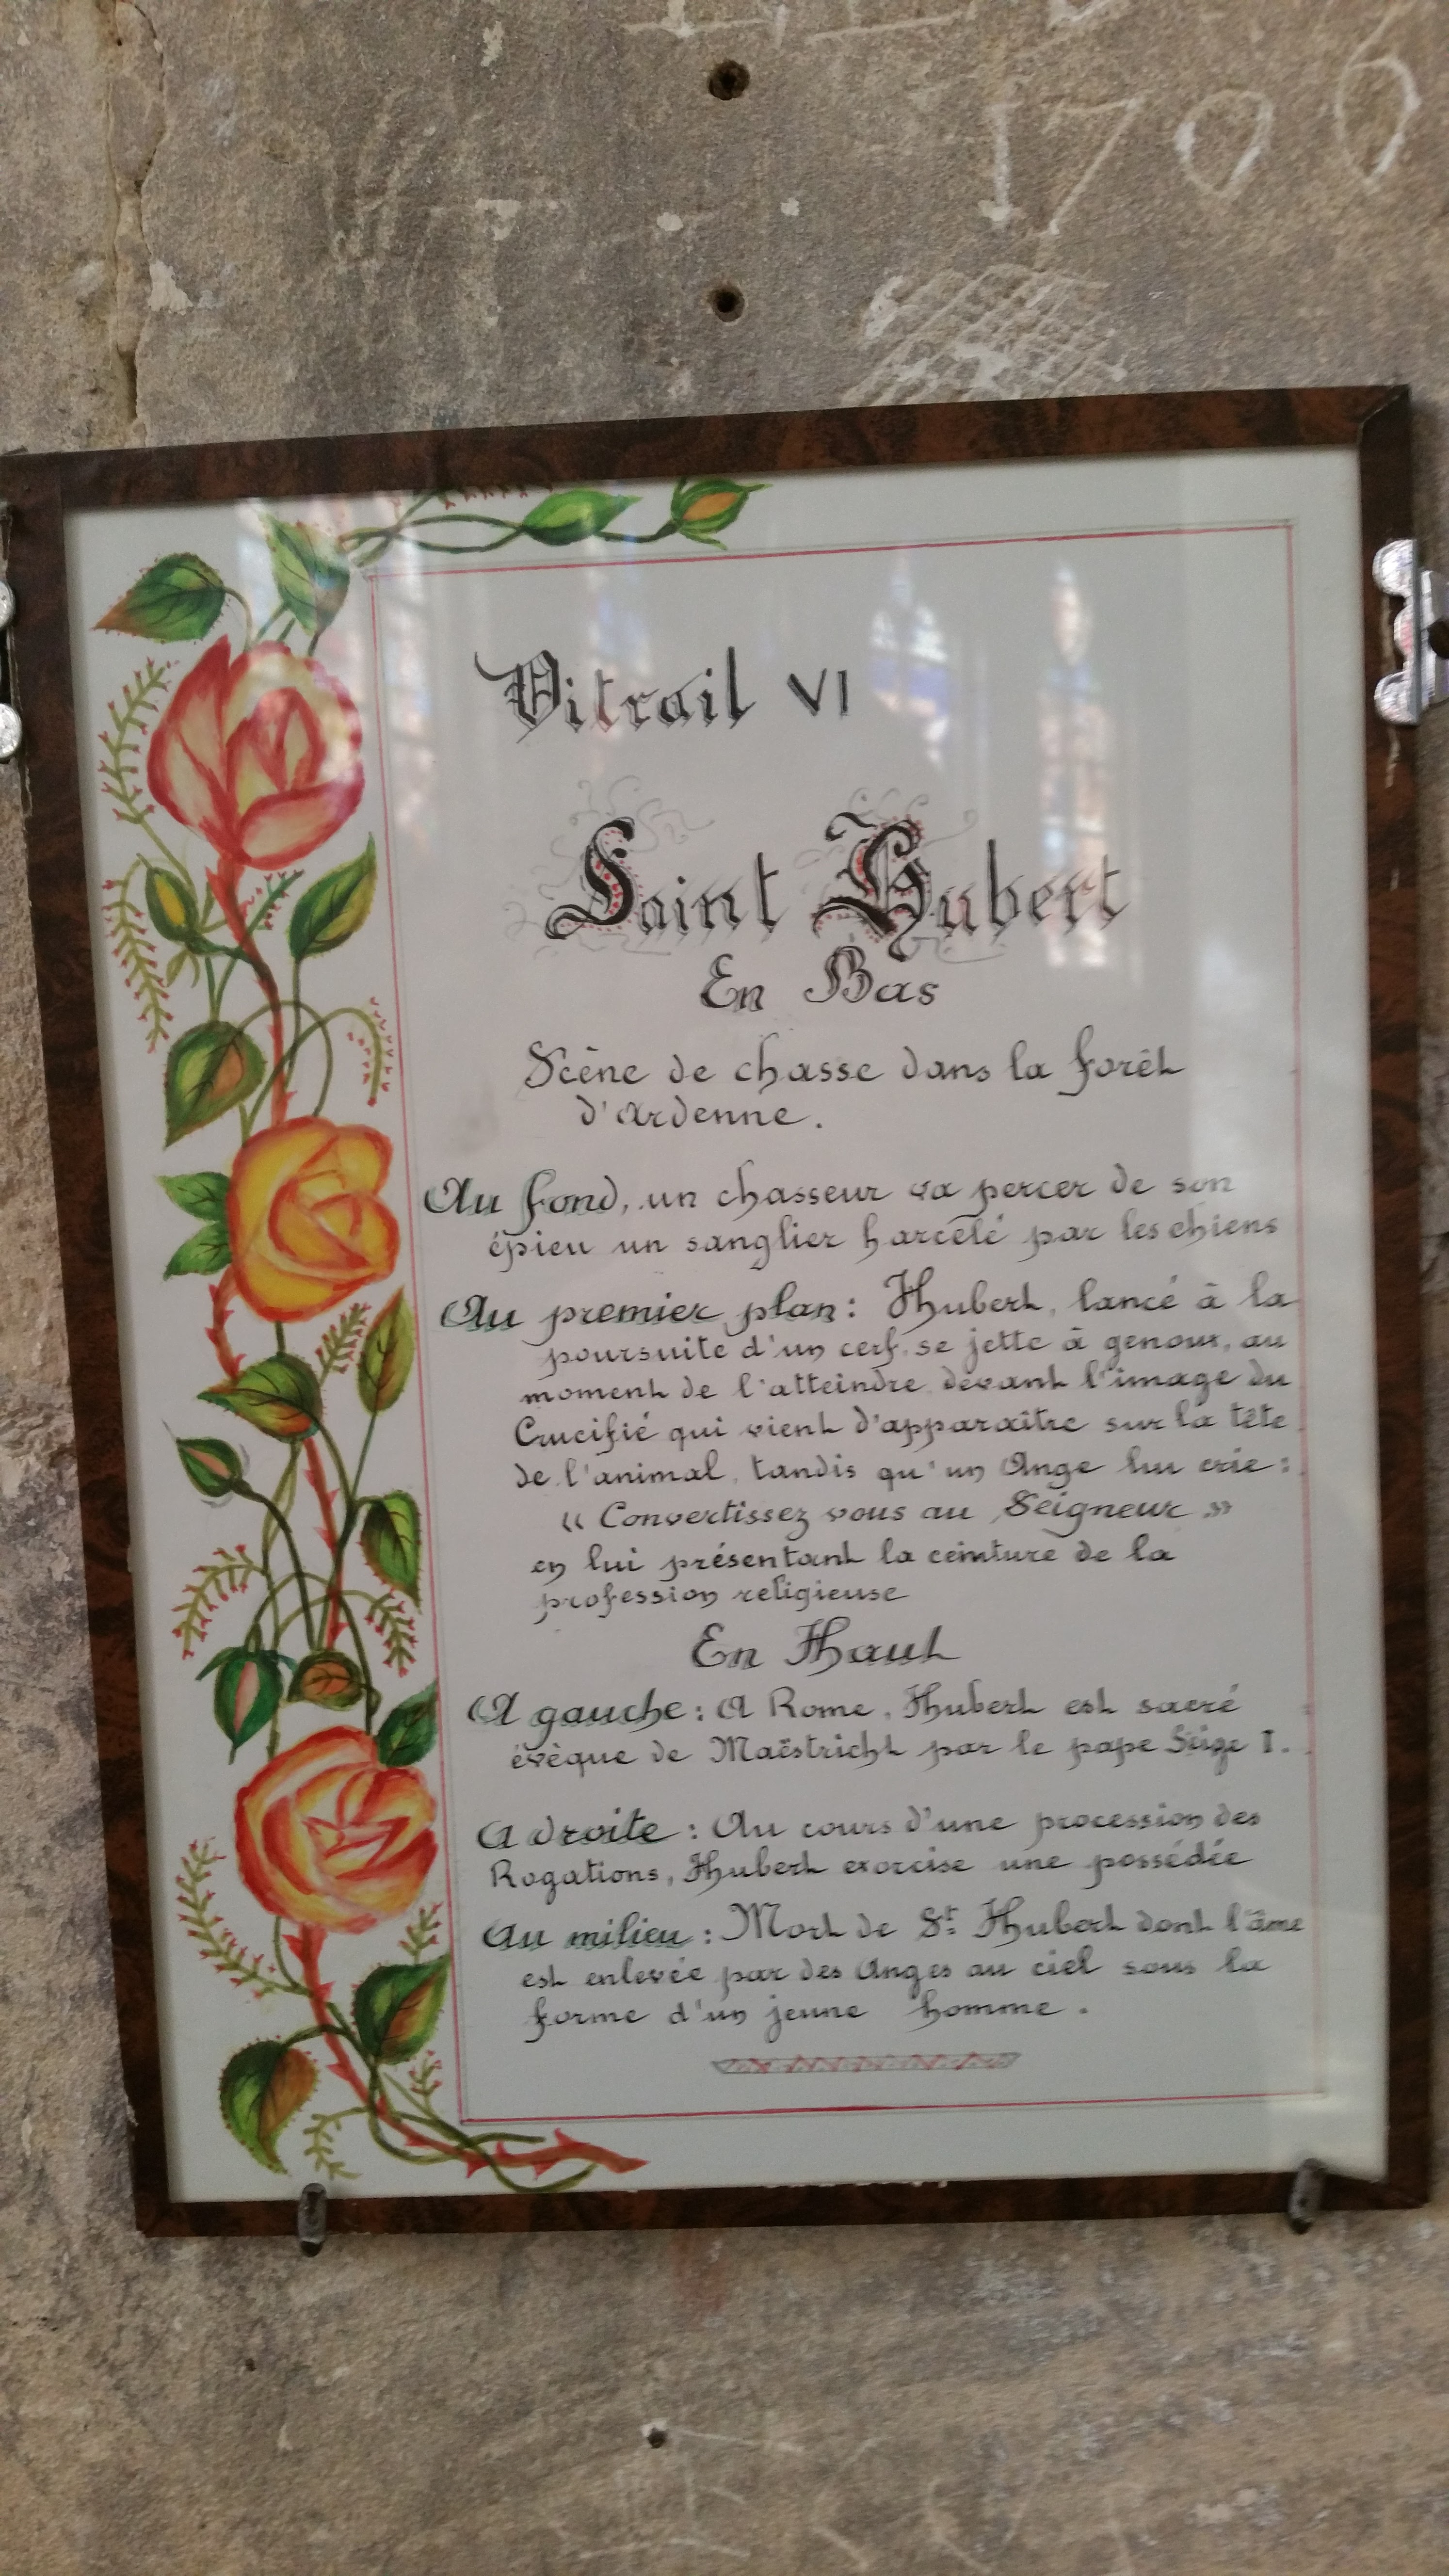 1700
Vitrail VI
Saint Hubert
En Bas
Scène de chasse dans la forêt
d'Ardenne.
Au fond, un chasseur va percer de son
épieu un sanglier harcelé par les chiens
Au premier plan : Hubert, lancé à la
poursuite d'un cerf, se jette à genoux, au
moment de l'atteindre, devant l'image du
Crucifié qui vient d'apparaître sur la tête
de l'animal, tandis qu'un Ange lui crie :
« Convertissez vous au Seigneur »
en lui présentant la ceinture de la
profession religieuse
En Haut
A gauche : A Rome, Hubert est sacré
évêque de Maëstricht par le pape I.
A droite : Au cours d'une procession des
Rogations, Hubert exorcise une possédée
Au milieu : Mort de St Hubert dont l'âme
est enlevée par des Anges au ciel sous la
forme d'un jeune homme.